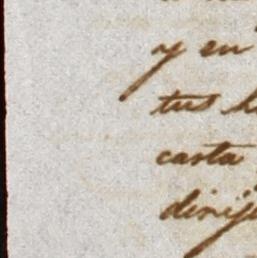 y en
tus
carta
dirij